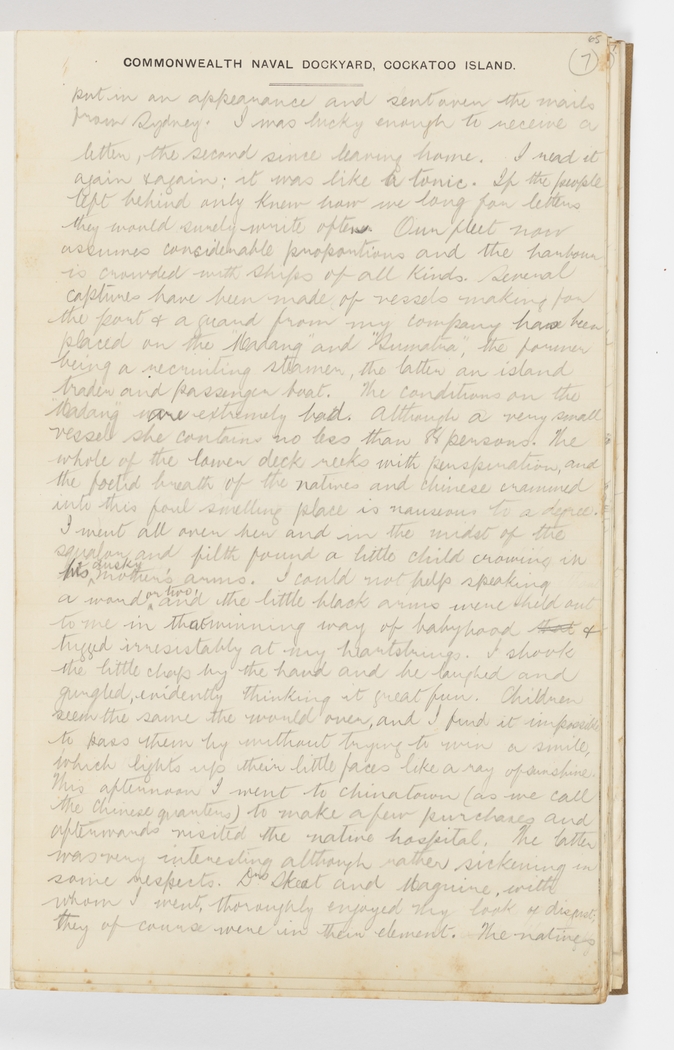 65
(7)
COMMONWEALTH NAVAL DOCKYARD, COCKATOO ISLAND.
put in an appearance and sent over the mails
from Sydney. I was lucky enough to receive a
letter, the second since leaving home. I read it
again & again; it was like a tonic. If the people
left behind only knew how we long for letters
they would surely write often. Our fleet now
assumes considerable proportions and the harbour
is crowded with ships of all kinds. Several
captures have been made, of vessels making for
the port & a guard from my company have been
placed on the "Madang" and "Sumatra", the former
being a recruiting steamer, the latter an island
trader and passenger boat. The conditions on the
"Madang" were extremely bad. Although a very small
vessel she contains no less than 88 persons. The
whole of the lower deck reeks with perspiration, and
the foetid breath of the natives and Chinese crammed
into this foul smelling place is nauseous to a degree.
I went all over her and in the midst of the
squalor and filth found a little child crowing in
his dusky mother's arms. I could not help speaking
a word or two, and the little black arms were held out
to me in that winning way of babyhood that &
tugged irresistably at my heartstrings. I shook
the little chap by the hand and he laughed and
gurgled, evidently thinking it great fun. Children
seem the same the world over, and I find it impossible
to pass them by without trying to win a smile,
which lights up their little faces like a ray of sunshine.
This afternoon I went to Chinatown (as we call
the Chinese quarters) to make a few purchases and
afterwards visited the native hospital. The latter
was very interesting although rather sickening in
some respects. Drs Skeat and Maguire, with
whom I went, thoroughly enjoyed my look of disgust;
they of course were in their element. The natives